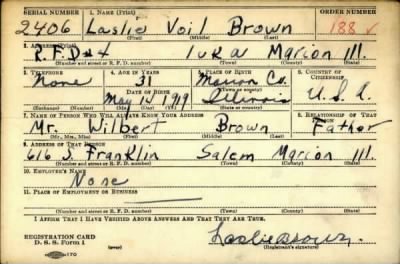 SERIAL NUMBER 1. NAME (Print) ORDER NUMBER
2406 Laslie Voil Brown 188
(First) (Middle) (Last)
2. ADDRESS (Print)
R.F.D #4 Iuka Marion Ill.
(Number and street or R. F. D. number) (Town) (County) (State)
3. TELEPHONE 4. AGE IN YEARS 5. PLACE OF BIRTH 6. COUNTRY OF CITIZENSHIP
None 21 Marion Co.
DATE OF BIRTH
May 14 1919 Illinois U.S.A.
(Exchange) (Number) (Mo.) (Day) (Yr.) (State or country)
7. NAME OF PERSON WHO WILL ALWAYS KNOW YOUR ADDRESS 8. RELATIONSHIP OF THAT PERSON
Mr. Wilbert Brown Father
(Mr., Mrs., Miss) (First) (Middle) (Last)
9. ADDRESS OF THAT PERSON
616 S. Franklin Salem Marion Ill.
(Number and street or R. F. D. number) (Town) (County) (State)
10. EMPLOYER'S NAME
None
11. PLACE OF EMPLOYMENT OR BUSINESS
(Number and street or R. F. D. number) (Town) (County) (State)
I AFFIRM THAT I HAVE VERIFIED ABOVE ANSWERS AND THAT THEY ARE TRUE.
REGISTRATION CARD
D. S. S. Form 1 Laslie Brown
(Registrant's signature)